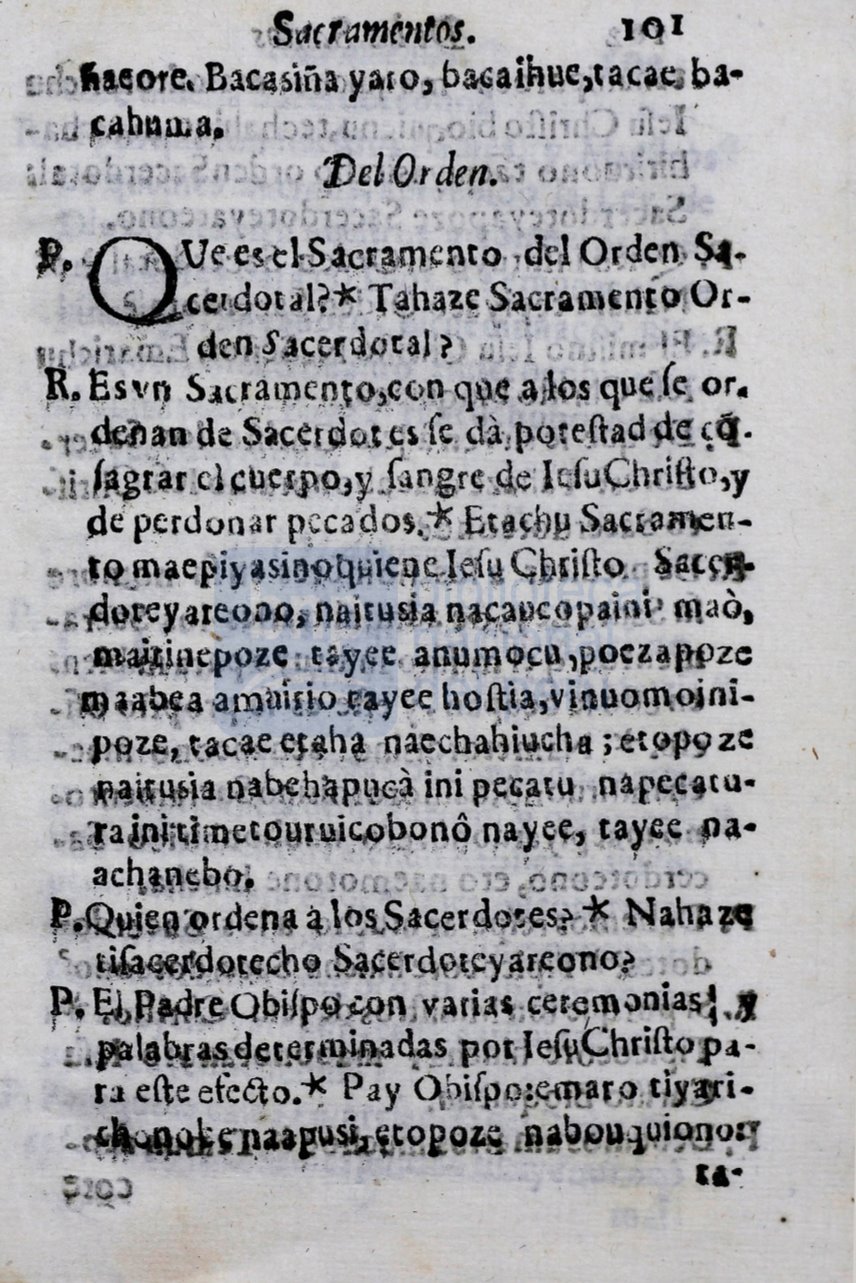 Sacramentos. 101
hacore. Bacasiña yaro, bacaihue, tacae, ba-
cahuma.
Del Orden.
P. QVe es el Sacramento del Orden Sa-
cerdotal?* Tahaze Sacramento Or-
den Sacerdotal?
R. Es vn Sacramento, con que a los que ſe or-
denan de Sacerdotes ſe dà poteſtad de cõ-
ſagrar el cuerpo, y ſangre de IeſuChriſto, y
de perdonar pecados.* Etachu Sacramen-
to maepiyasinoquiene Ieſu Chriſto Sacer-
doteyareono, naitusia nacaucopaini maò,
maitinepoze tayee anumocu, poezapoze
maabea amuirio tayee hoſtia, vinuomoini-
poze, tacae etaha naechahiucha; etopoze
naitusia nabehapucà ini pecatu napecatu-
rainitimetouruicobonô nayee, tayee na-
achanebo.
P. Quien ordena a los Sacerdotes?* Nahaze
tiſacerdotecho Sacerdoteyareono?
P. El Padre Obiſpo con varias ceremonias, y
palabras determinadas por IeſuChriſto pa-
ra eſte efecto.* Pay Obiſpo: emaro tiyari-
naapusi, etopoze nabouquiono:
ta-